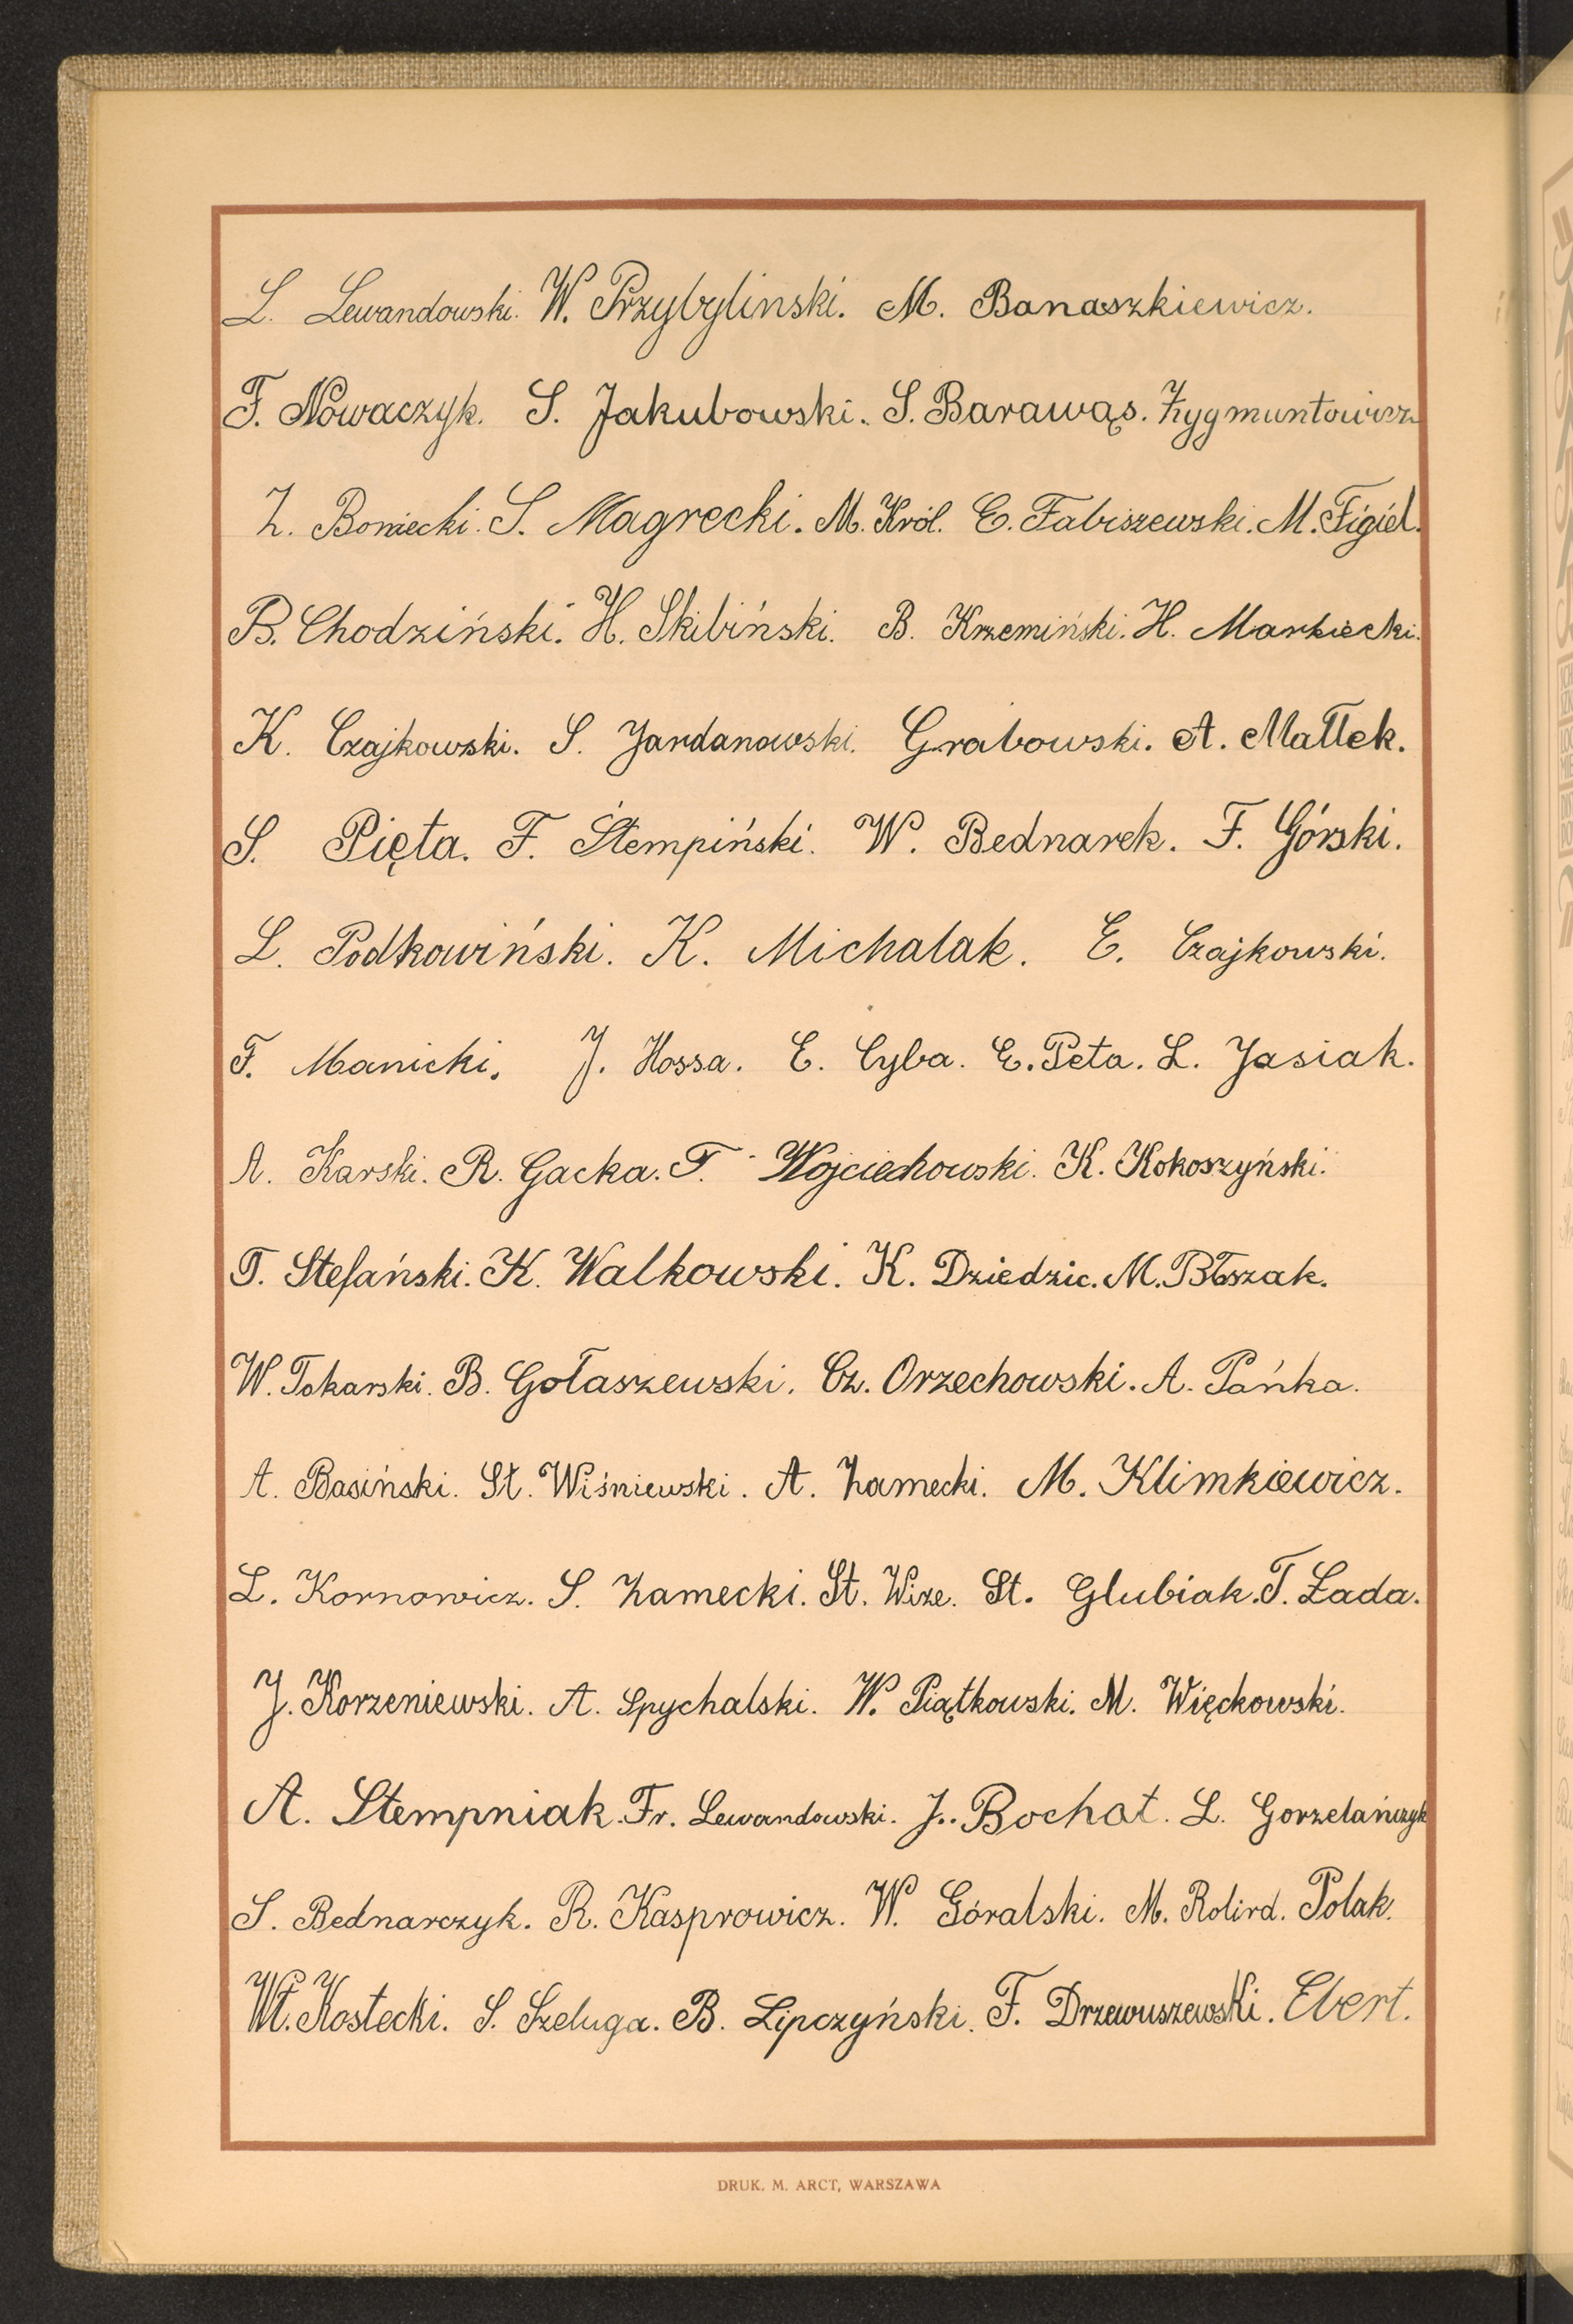 L. Lewandowski. W. Przybylinski. M. Banaszkiewicz.
F. Nowaczyk. S. Jakubowski. S. Barawąs. Zygmuntowicz
Z. Boniecki. S. Magrecki. M. Król. E. Fabiszewski. M. Figiel.
B. Chodziński. H. Skibiński. B. Krzemiński. H. Markiecki.
K. Czajkowski. S. Jardanowski. Grabowski. A. Małłek.
S. Pięta. F. Stempiński. W. Bednarek. F. Górski.
L. Podkowiński. K. Michalak. E. Czajkowski.
F. Manicki. J. Hossa. E. Cyba. E. Peta. L. Jasiak.
A. Karski. R. Gacka. F. Wojciechowski. K. Kokoszyński.
T. Stefański. K. Walkowski. K. Dziedzic. M.
W. Tokarski. B. Gołaszewski. Cz. Orzechowski. A. Pańka.
A. Basiński. St. Wiśniewski. A. Zamecki. M. Klimkiewicz.
L. Kornowicz. S. Zamecki. St. Wize. St. Glubiak. T. Łada.
J. Korzeniewski. A. Spychalski. W. Piątkowski. M. Więckowski.
A. Stempniak. Fr. Lewandowski. J. Bochat. L. Gorzelańczyk
S. Bednarczyk. R. Kasprowicz. W. Góralski. M. Rolird. Polak.
Wł. Kostecki. S. Szeluga. B. Lipczyński. F. Drzewuszewski. Ebert.
DRUK. M. ARCT, WARSZAWA